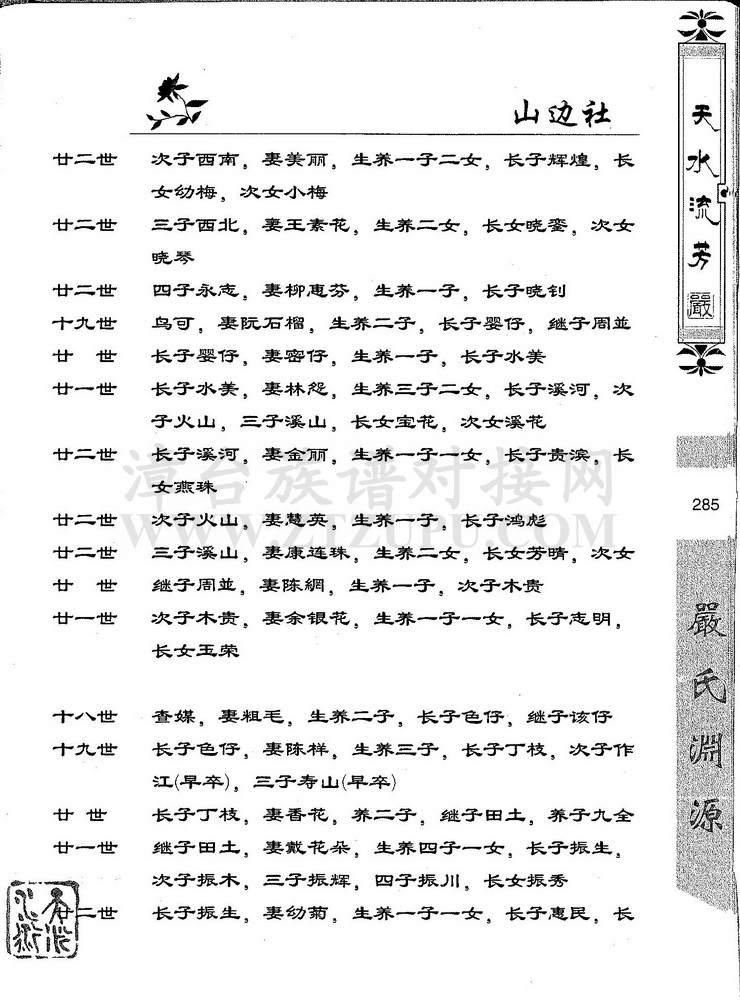 山边社
廿二世 次子西南，妻美丽，生养一子二女，长子辉煌，长
女幼梅，次女小梅
廿二世 三子西北，妻王素花，生养二女，长女晓銮，次女
晓琴
廿二世 四子永志，妻柳惠芬，生养一子，长子晓钊
十九世 鸟可，妻阮石榴，生养二子，长子婴仔，继子周並
廿 世 长子婴仔，妻密仔，生养一子，长子水美
廿一世 长子水美，妻林怨，生养三子二女，长子溪河，次
子火山，三子溪山，长女宝花，次女溪花
廿二世 长子溪河，妻金丽，生养一子一女，长子贵滨，长
女燕珠
廿二世 次子火山，妻慧英，生养一子，长子鸿彪
廿二世 三子溪山，妻康连珠，生养二女，长女芳晴，次女
廿 世 继子周並，妻陈網，生养一子，次子木贵
廿一世 次子木贵，妻余银花，生养一子一女，长子志明，
长女玉荣
十八世 查媒，妻粗毛，生养二子，长子色仔，继子该仔
十九世 长子色仔，妻陈样，生养三子，长子丁枝，次子作
江(早卒)，三子寿山(早卒)
廿 世 长子丁枝，妻香花，养二子，继子田土，养子九全
廿一世 继子田土，妻戴花朵，生养四子一女，长子振生，
次子振木，三子振辉，四子振川，长女振秀
廿二世 长子振生，妻幼菊，生养一子一女，长子惠民，长
天水流芳
嚴
285
嚴氏淵源
漳台族谱对接网
WWW.ZTZUPU.COM